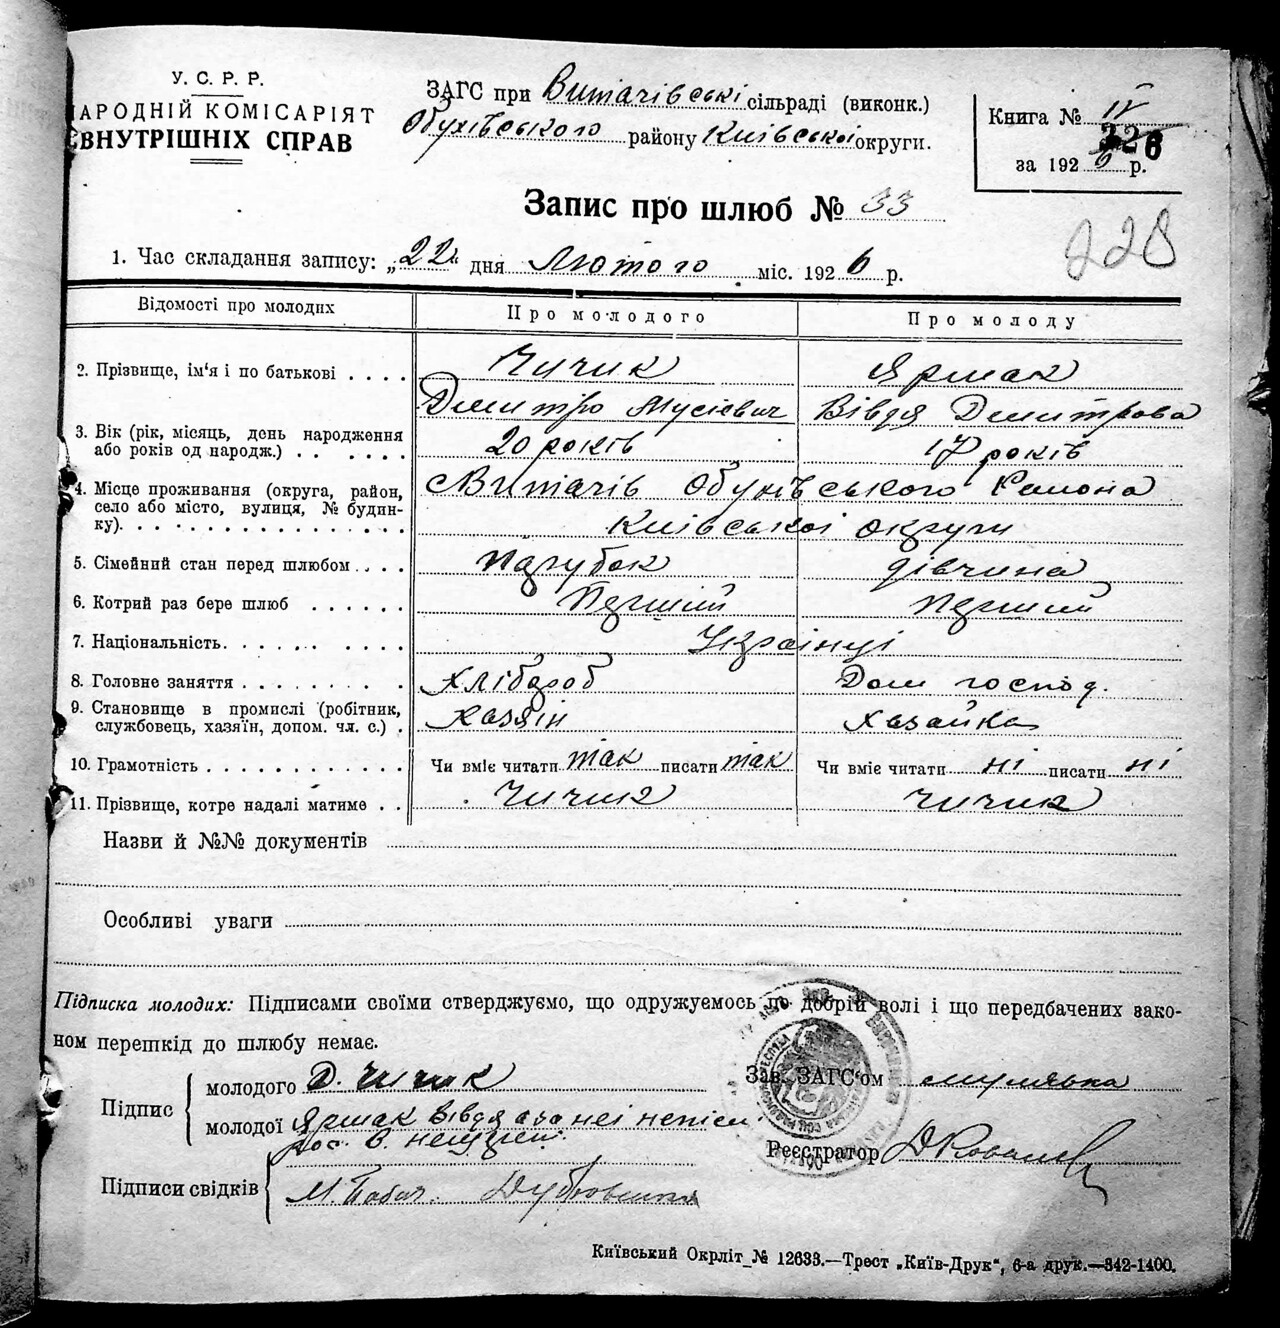 У. С. Р. Р.
НАРОДНІЙ КОМІСАРІЯТ
ВНУТРІШНІХ СПРАВ
ЗАГС при Витачівській сільраді (виконк.)
Обухівського району Київської округи.
Книга № IV
226
за 1926 р.
Запис про шлюб № 33
228
1. Час складання запису: „22" дня Лютого міс. 1926 р.
Відомості про молодих Про молодого Про молоду
2. Прізвище, ім'я і по батькові . . . . Чичик Ярмак
Дмитро Мусієвич Вівдя Дмитрова
3. Вік (рік, місяць, день народження
або років од народж.) . . . . . . 20 років 17 років
4. Місце проживання (округа, район,
село або місто, вулиця, № будин-
ку). . . . . . . . . . . . . . . .
с Витачів Обухівського Района
Київської округи
5. Сімейний стан перед шлюбом . . . . Парубок дівчина
6. Котрий раз бере шлюб . . . . . . Перший Перший
7. Національність. . . . . . . . . . Українці
8. Головне заняття . . . . . . . . . Хлібороб Дом господ.
9. Становище в промислі (робітник,
службовець, хазяїн, допом. чл. с.) . Хазяін Хазайка
10. Грамотність . . . . . . . . . . . Чи вміє читати так писати так Чи вміє читати ні писати ні
11. Прізвище, котре надалі матиме . . Чичик Чичик
Назви й №№ документів
Особливі уваги
Підписка молодих: Підписами своїми стверджуємо, що одружуємось по добрій волі і що передбачених зако-
ном перешкід до шлюбу немає.
Підпис
молодого Д. Чичик
молодої Ярмак Вівдя а за неі
Зав. ЗАГС'ом
Реєстратор
Підписи свідків М.
Київський Окрліт № 12633.—Трест „Київ-Друк", 6-а друк.—342-1400.